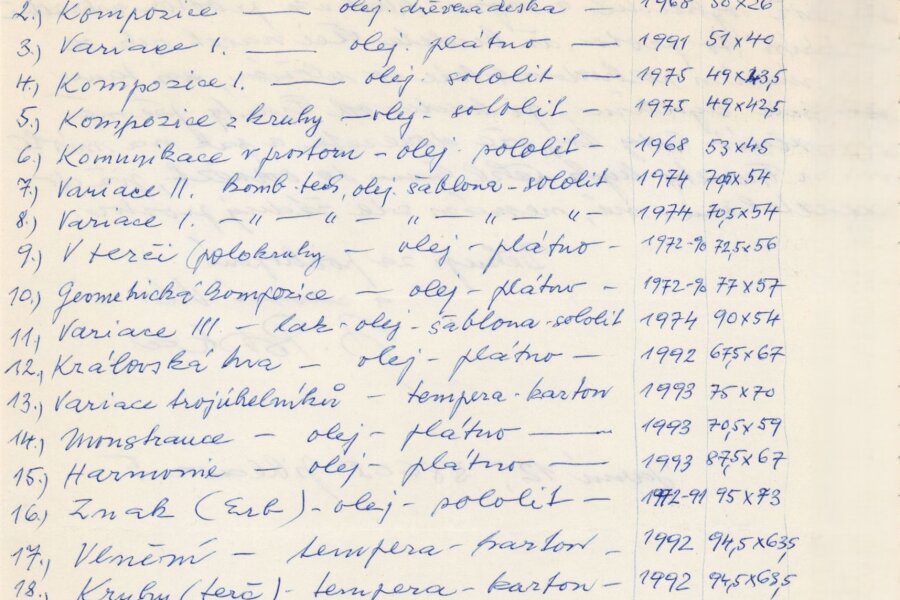 2.) Kompozice — olej dřevěná deska — 1968 50x26
3.) Variace I. — olej plátno — 1991 51x40
4.) Kompozice I. — olej sololit 1975 49x43,5
5.) Kompozice z kruhy — olej - sololit - 1975 49x42,5
6.) Komunikace v prostoru - olej sololit - 1968 53x45
7.) Variace II. komb. tech. olej. šablona - sololit 1974 70,5x54
8.) Variace I. — " — " — " — " — " — 1974 70,5x54
9.) V terči (polokruhy - olej - plátno - 1972-90 72,5x56
10.) Geometrická kompozice — olej - plátno - 1972-90 77x57
11.) Variace III. - lak - olej - šablona - sololit 1974 90x54
12.) Královská hra - olej - plátno - 1992 67,5x67
13.) Variace trojúhelníků - tempera - karton 1993 75x70
14.) Monstrance - olej - plátno — 1993 70,5x59
15.) Harmonie - olej - plátno — 1993 87,5x67
16.) Znak (Erb) - olej - sololit - 1972-91 95x73
17.) Vlnění - tempera - karton - 1992 94,5x63,5
18.) Kruhy (terč) - tempera - karton - 1992 94,5x63,5